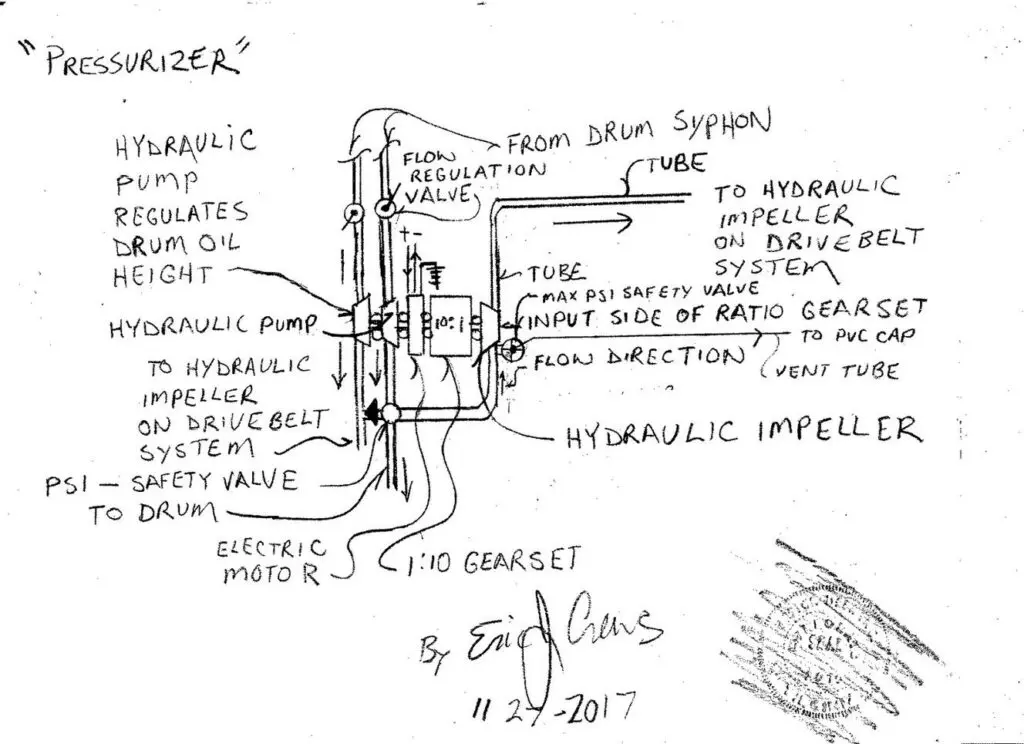 "PRESSURIZER"
HYDRAULIC
PUMP
REGULATES
DRUM OIL
HEIGHT
FROM DRUM SYPHON
FLOW
REGULATION
VALVE
TUBE
TO HYDRAULIC
IMPELLER
ON DRIVE BELT
SYSTEM
+ -
TUBE
MAX PSI SAFETY VALVE
HYDRAULIC PUMP
10:1
INPUT SIDE OF RATIO GEARSET
TO PVC CAP
FLOW DIRECTION
VENT TUBE
TO HYDRAULIC
IMPELLER
ON DRIVE BELT
SYSTEM
HYDRAULIC IMPELLER
PSI - SAFETY VALVE
TO DRUM
ELECTRIC
MOTOR
1:10 GEARSET
By Eric Crews
11 27-2017
SEAL